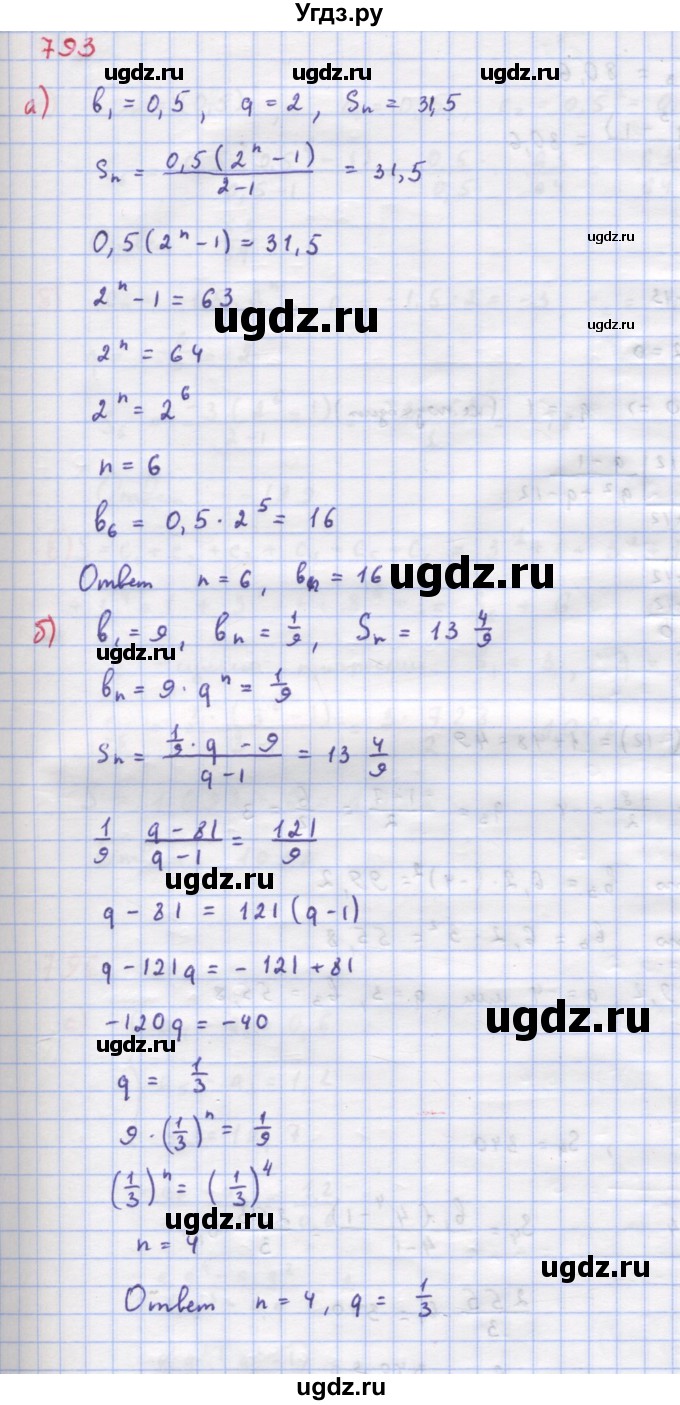 Угдз.ру
793
ugdz.ru ugdz.ru
а) b₁ = 0,5, q = 2, Sₙ = 31,5
Sₙ = 0,5(2ⁿ - 1)/(2-1) = 31,5
0,5(2ⁿ-1) = 31,5 ugdz.ru
2ⁿ - 1 = 63
ugdz.ru ugdz.ru
2ⁿ = 64
2ⁿ = 2⁶
n = 6
b₆ = 0,5 · 2⁵ = 16
Ответ n = 6, bₙ = 16 ugdz.ru
б) b₁ = 9, bₙ = 1/9, Sₙ = 13 4/9
ugdz.ru
bₙ = 9 · qⁿ = 1/9
Sₙ = (1/9 · q - 9)/(q - 1) = 13 4/9
1/9 (q - 81)/(q - 1) = 121/9
ugdz.ru
q - 81 = 121(q-1)
q - 121q = - 121 + 81
-120q = -40 ugdz.ru
ugdz.ru
q = 1/3
9 · (1/3)ⁿ = 1/9
(1/3)ⁿ = (1/3)⁴
ugdz.ru
n = 4
ugdz.ru
Ответ n = 4, q = 1/3
ugdz.ru